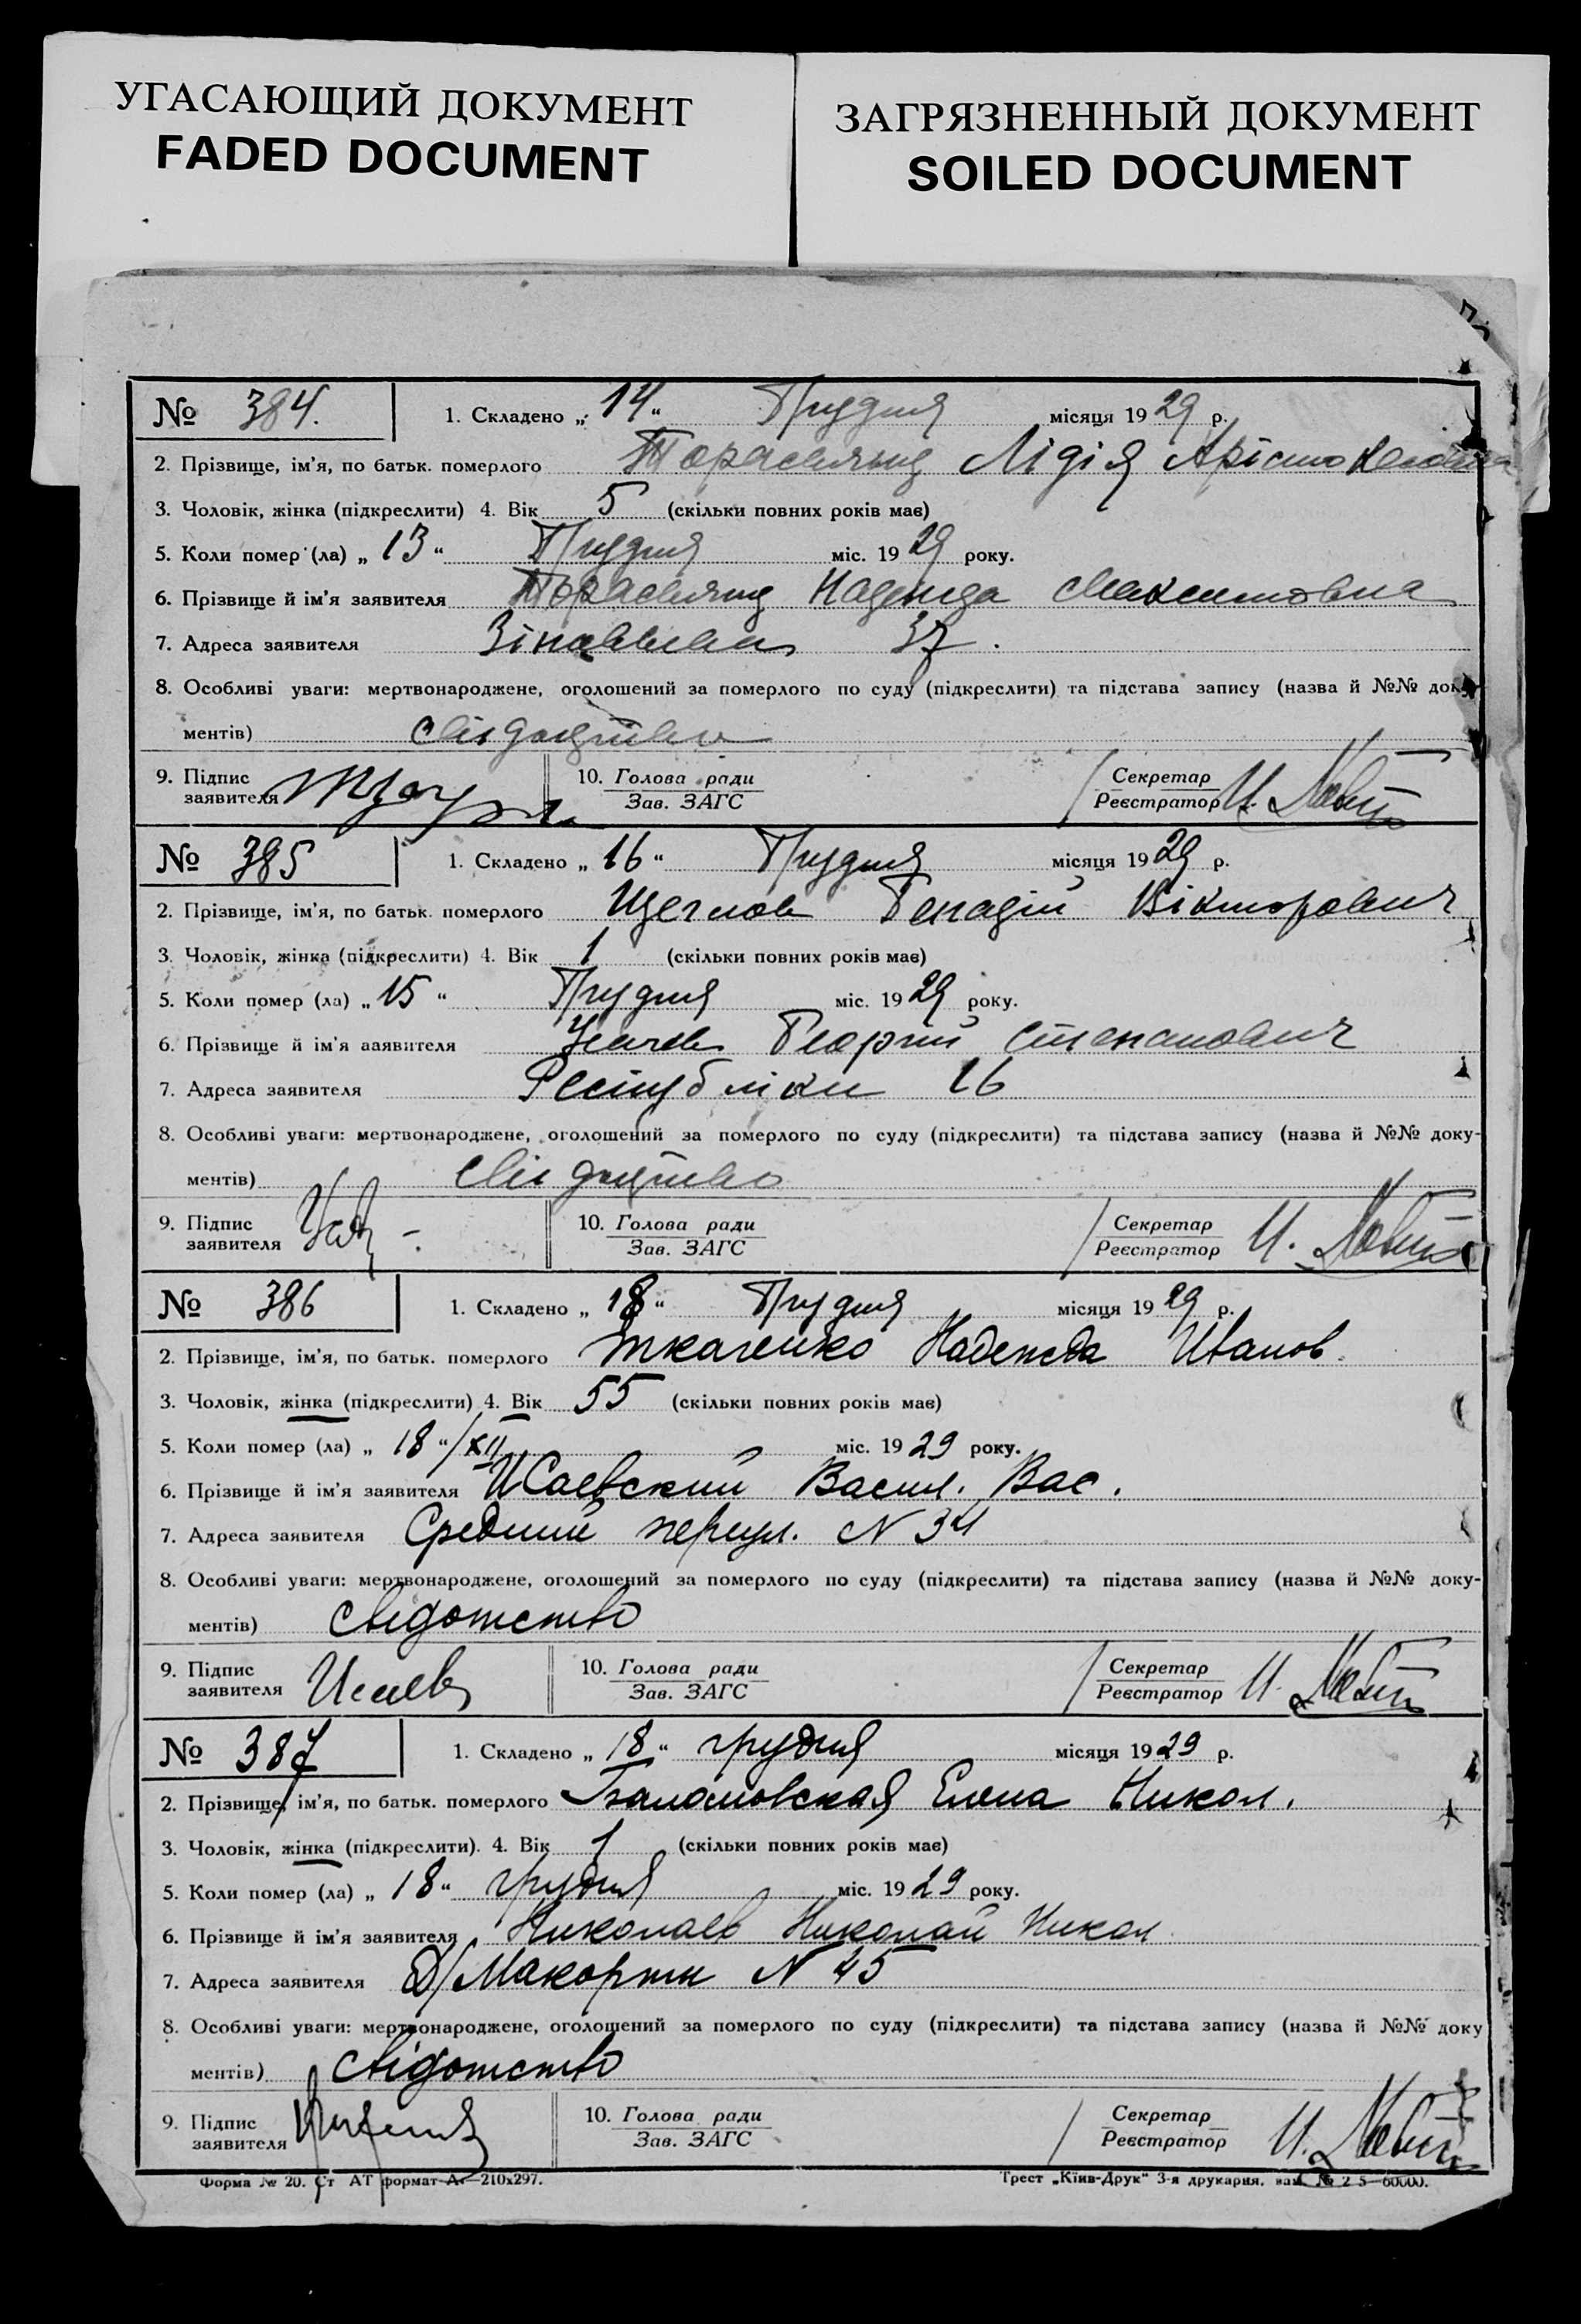 УГАСАЮЩИЙ ДОКУМЕНТ
FADED DOCUMENT
ЗАГРЯЗНЕННЫЙ ДОКУМЕНТ
SOILED DOCUMENT
№ 384. 1. Складено „ 14 “ Грудня місяця 1929 р.
2. Прізвище, ім'я, по батьк. померлого Лідія
3. Чоловік, жінка (підкреслити) 4. Вік 5 (скільки повних років має)
5. Коли помер (ла) „ 13 “ Грудня міс. 1929 року.
6. Прізвище й ім'я заявителя Надежда Максимовна
7. Адреса заявителя 37.
8. Особливі уваги: мертвонароджене, оголошений за померлого по суду (підкреслити) та підстава запису (назва й №№ доку-
ментів) свідоцтво
9. Підпис заявителя 10. Голова ради Зав. ЗАГС Секретар Реєстратор И.
№ 385 1. Складено „ 16 “ Грудня місяця 1929 р.
2. Прізвище, ім'я, по батьк. померлого Щеглов Генадій Вікторович
3. Чоловік, жінка (підкреслити) 4. Вік 1 (скільки повних років має)
5. Коли помер (ла) „ 15 “ Грудня міс. 1929 року.
6. Прізвище й ім'я заявителя Георгій Степанович
7. Адреса заявителя Республіки 16
8. Особливі уваги: мертвонароджене, оголошений за померлого по суду (підкреслити) та підстава запису (назва й №№ доку-
ментів) свідоцтво
9. Підпис заявителя 10. Голова ради Зав. ЗАГС Секретар Реєстратор И.
№ 386 1. Складено „ 18 “ Грудня місяця 1929 р.
2. Прізвище, ім'я, по батьк. померлого Ткаченко Надежда Иванов.
3. Чоловік, жінка (підкреслити) 4. Вік 55 (скільки повних років має)
5. Коли помер (ла) „ 18 “/XII міс. 1929 року.
6. Прізвище й ім'я заявителя Исаевский Васил. Вас.
7. Адреса заявителя Средний переул. N 34
8. Особливі уваги: мертвонароджене, оголошений за померлого по суду (підкреслити) та підстава запису (назва й №№ доку-
ментів) свідотство
9. Підпис заявителя Исаев 10. Голова ради Зав. ЗАГС Секретар Реєстратор И.
№ 387 1. Складено „ 18 “ грудня місяця 1929 р.
2. Прізвище, ім'я, по батьк. померлого Елена Никол.
3. Чоловік, жінка (підкреслити). 4. Вік 1 (скільки повних років має)
5. Коли помер (ла) „ 18 “ грудня міс. 1929 року.
6. Прізвище й ім'я заявителя Николаев Николай Никол
7. Адреса заявителя Д/Макорти N 45
8. Особливі уваги: мертвонароджене, оголошений за померлого по суду (підкреслити) та підстава запису (назва й №№ доку
ментів) свідотство
9. Підпис заявителя 10. Голова ради Зав. ЗАГС Секретар Реєстратор И.
Форма № 20. Ст АТ формат А4—210х297. Трест „Київ-Друк“ 3-я друкарня.